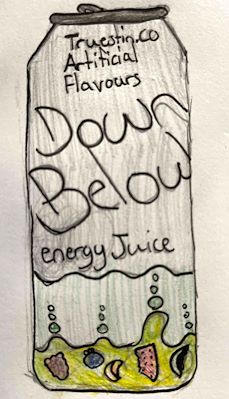 Truestin.co
Artificial
Flavours
Down
Below
energy Juice